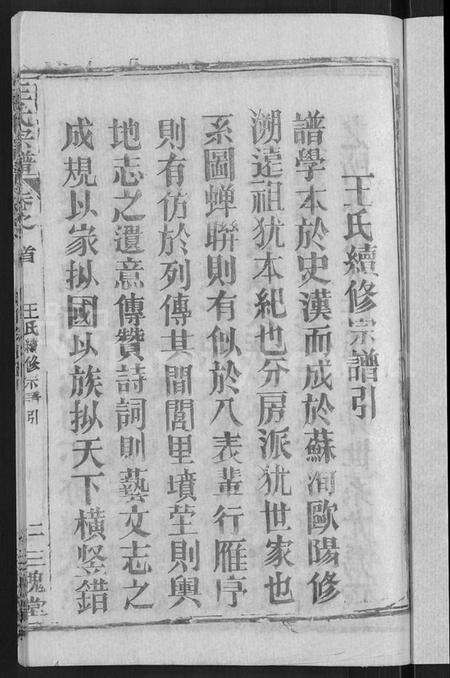 王氏續修宗譜引
譜學本於史漢而成於蘇洵歐陽修
溯遠祖犹本紀也分房派犹世家也
系圖蝉聯則有似於八表輩行雁序
則有仿於列傳其間閭里墳茔則輿
地志之遺意傳贊詩詞則藝文志之
成規以家拟國以族拟天下横竖錯
王氏宗譜
卷之首
王氏續修宗譜引
三槐堂